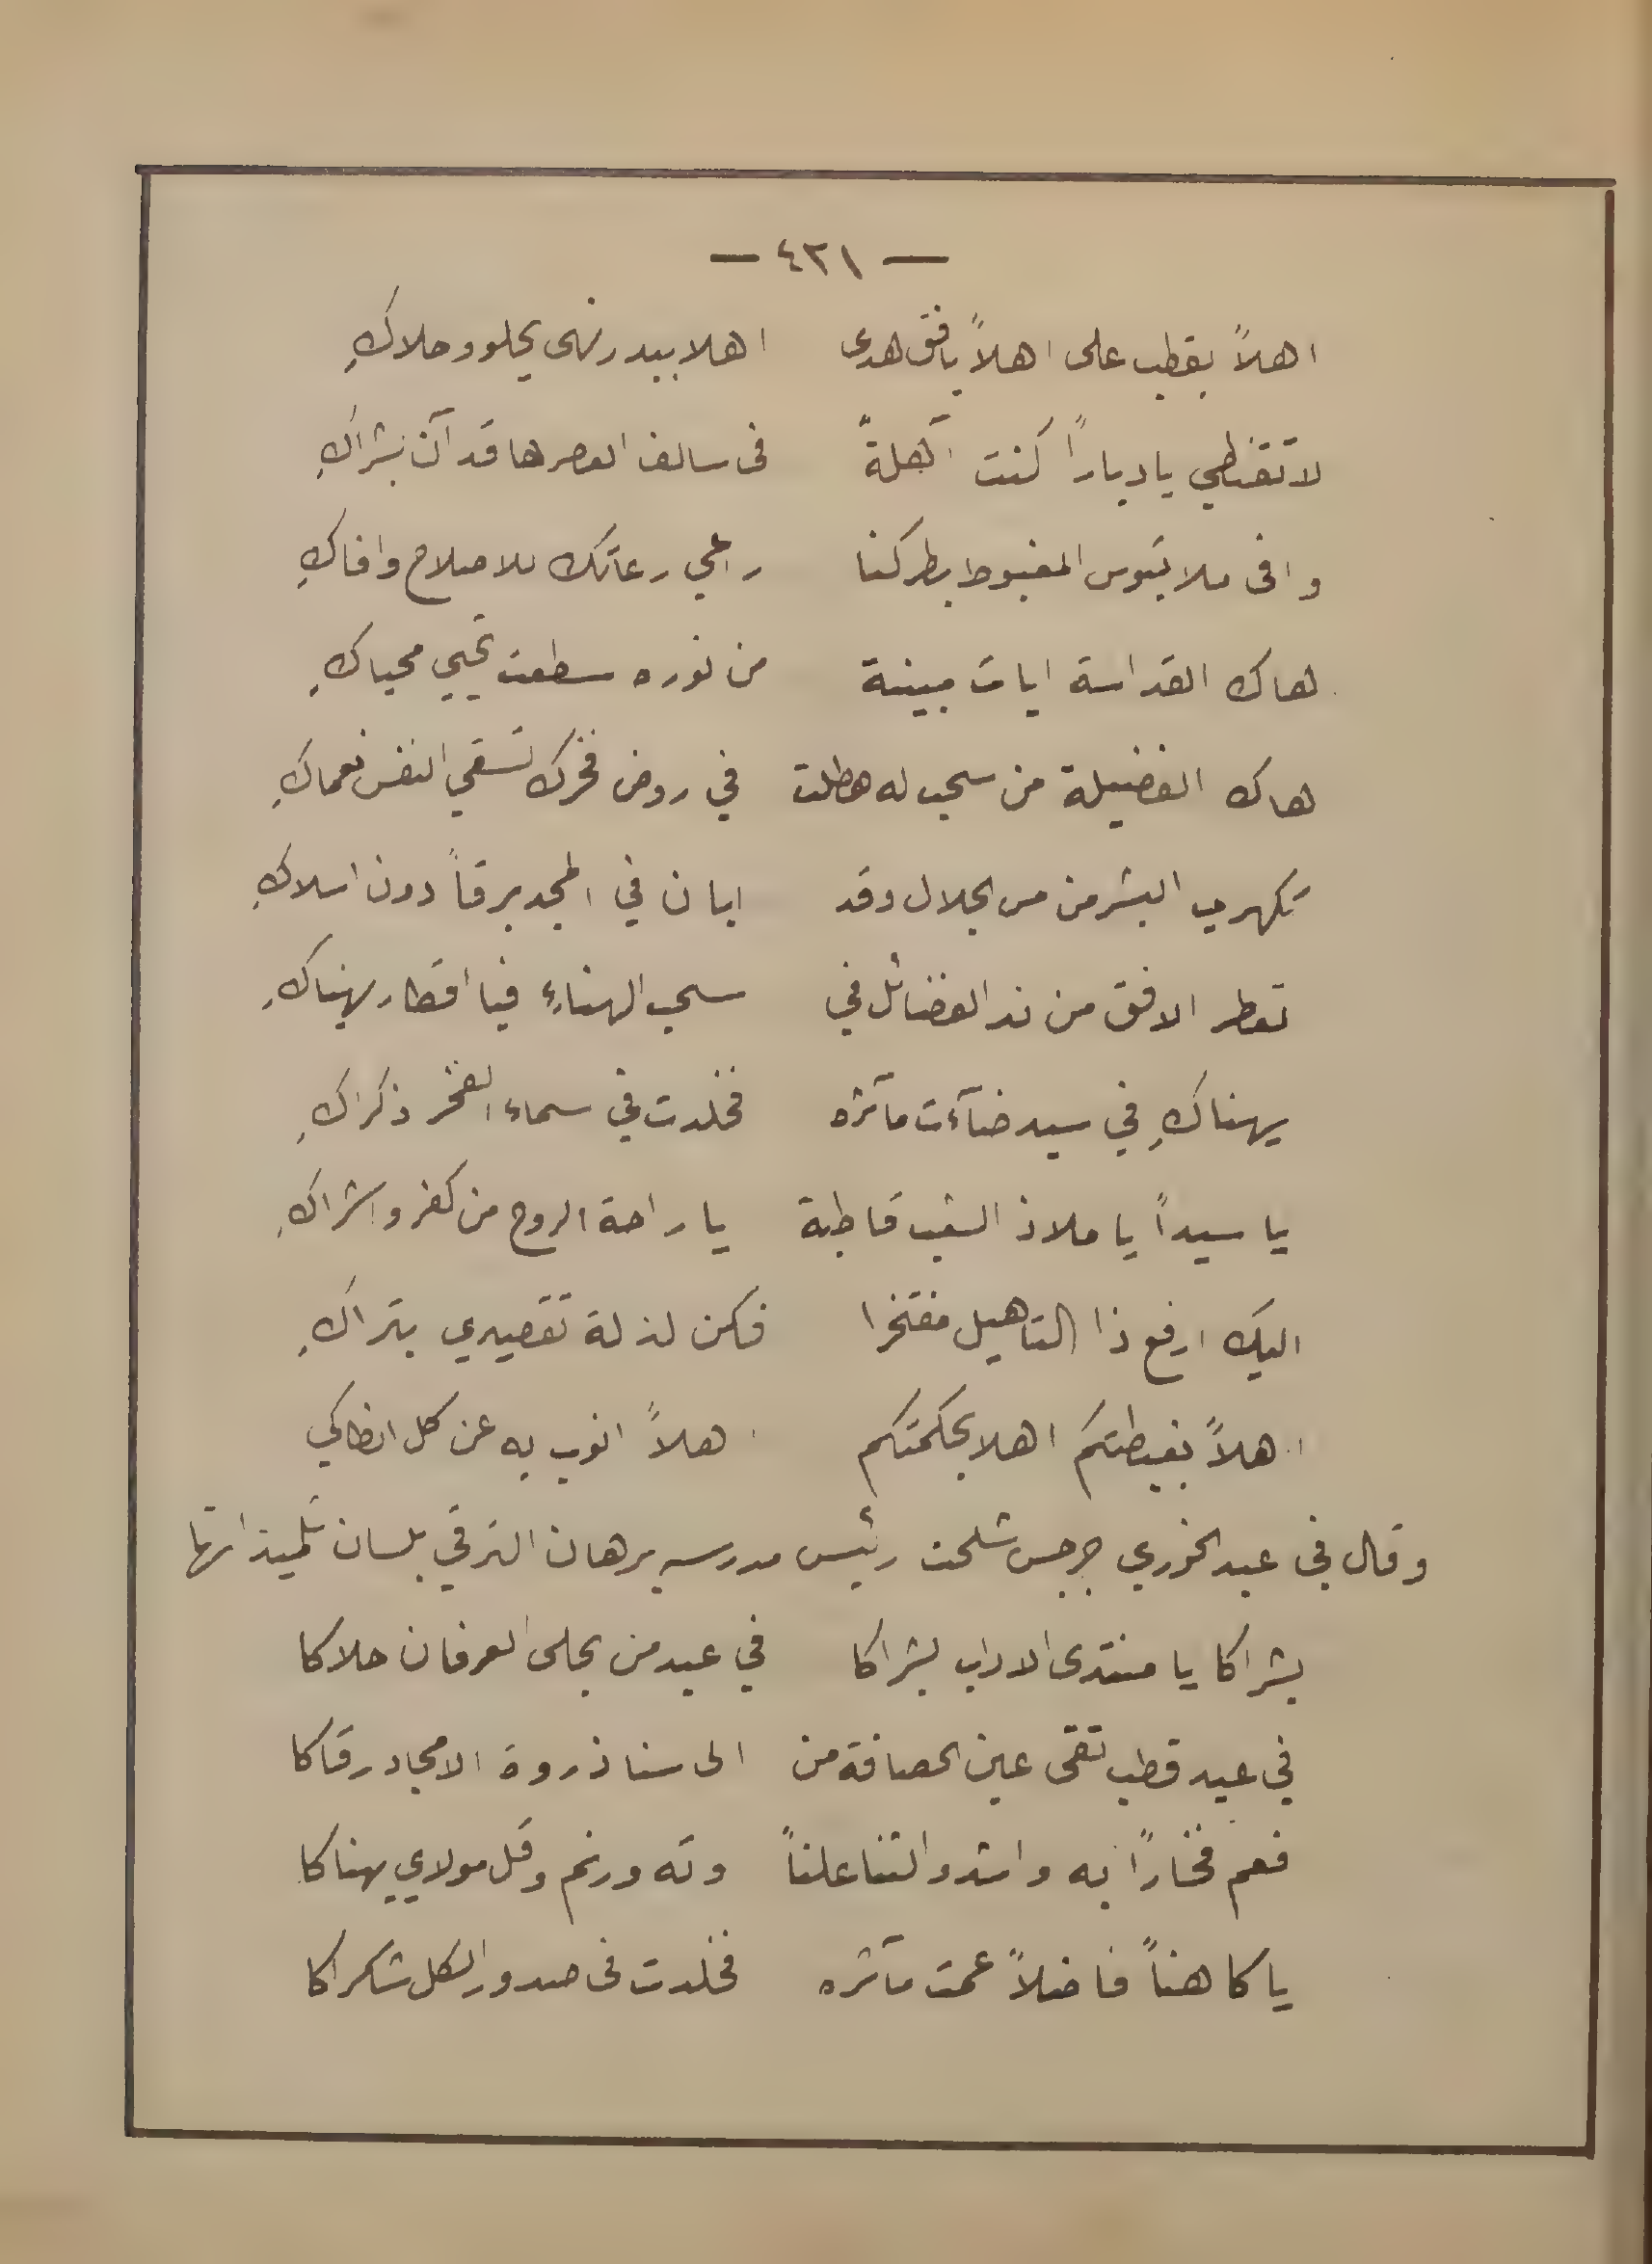 — ٤٣١ —
اهلاً بقطب على اهلاً بافق هدى اهلا ببدر نهى يحلو وحلاكِ
لا تقنطي يا دياراً كنت آهلةً فى سالف العصر ها قد آن بشراكِ
وافى ملاتيوس المغبوط بطركنا راعي رعاتك للاصلاح وافاكِ
هاك القداسة ايات مبينة من نوره سطعت تحيي محياكِ
هاك الفضيلة من سحب له هطلت في روض فخرك تسقي النفس نعماكِ
تكهرب البشر من مس الجلال وقد ابان في المجد برقاً دون اسلاكِ
تعطر الافق من ند الفضائل في سحب الهناء فيا اقطار يهناكِ
يهناكِ في سيد ضآءت مآثره فخلدت في سماء الفخر ذكراكِ
يا سيداً يا ملاذ الشعب قاطبة يا راحة الروح من كفر واشراكِ
اليك ارفع ذا التاهيل مفتخرا فكن لذلة تقصيري بتراكِ
اهلاً بغبطتكم اهلا بحكمتكم اهلاً انوب به عن كل انطاكي
وقال في عيد الخوري جرجس شلحت رئيس مدرسه برهان الترقي بلسان تلميذاتها
بشراكا يا منتدى الاداب بشراكا في عيد من بحلى العرفان حلاكا
في عيد قطب تقى عين الحصافة من الى سنا ذروة الامجاد رقاكا
فعم فخاراً به واشدو الثنا علناً وته ورنم وقل مولاي يهناكا
يا كاهناً فاضلاً عمت مآثره فخلدت فى صدور الكل شكراكا